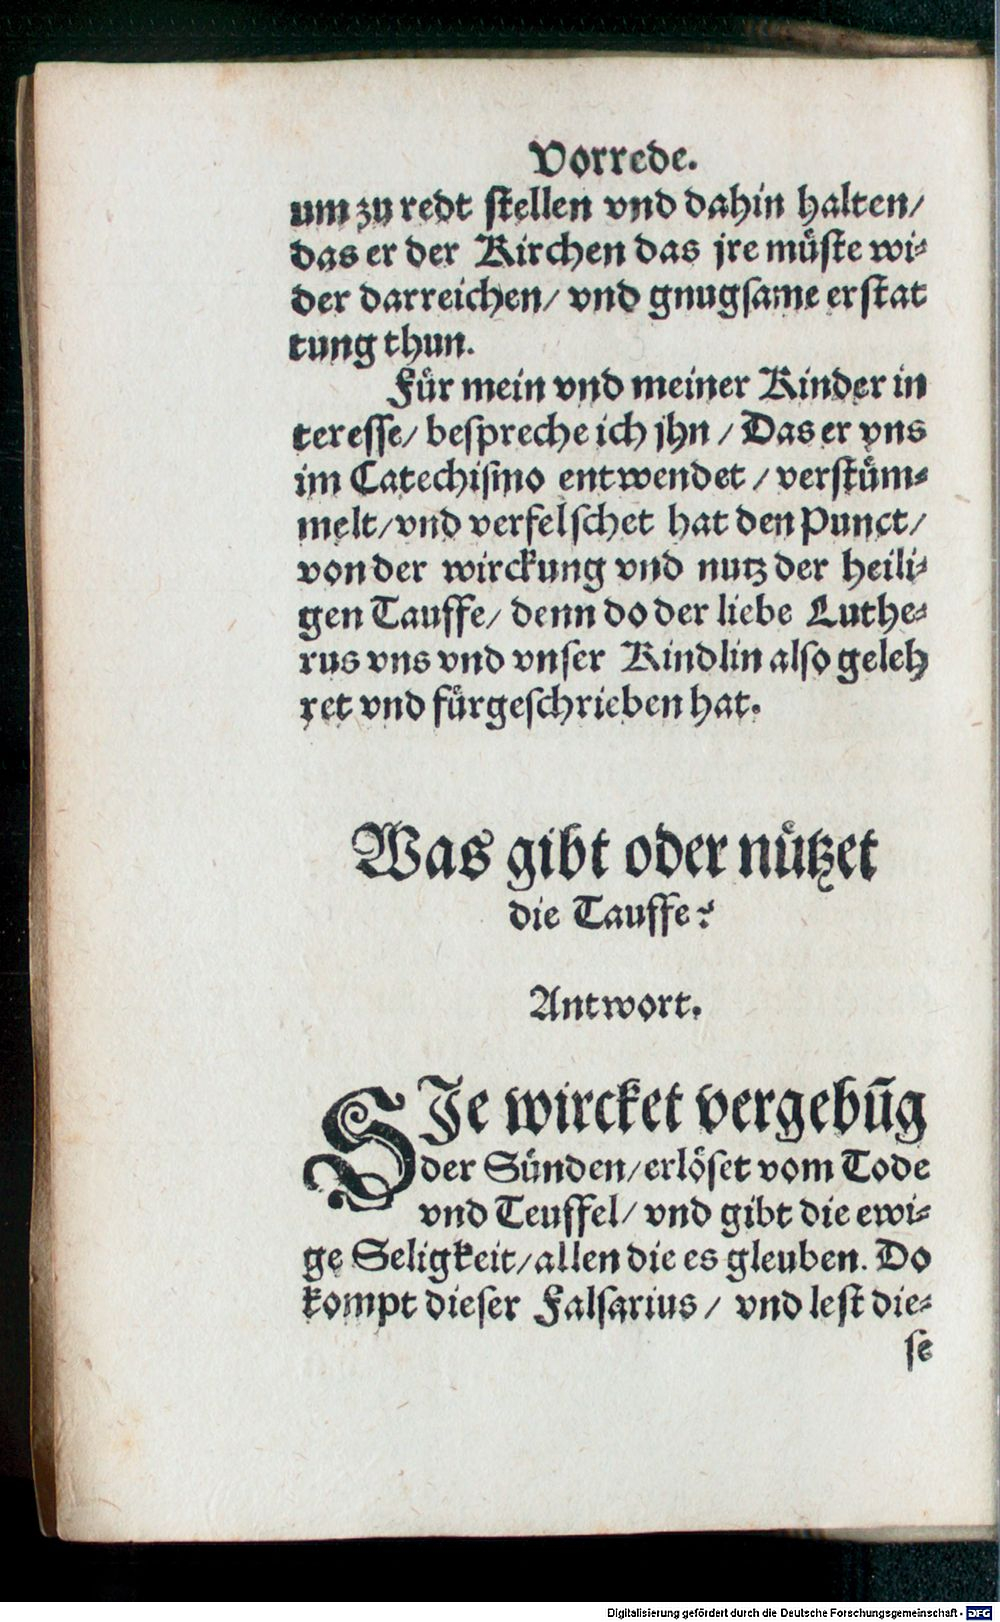 Vorrede.
um zu redt stellen vnd dahin halten/
das er der Kirchen das jre müste wi-
der darreichen/ vnd gnugsame erstat
tung thun.
Für mein vnd meiner Kinder in
teresse/ bespreche ich jhn / Das er vns
im Catechismo entwendet / verstüm-
melt/ vnd verfelschet hat den Punct/
von der wirckung vnd nutz der heili-
gen Tauffe/ denn do der liebe Luthe-
rus vns vnd vnser Kindlin also geleh
ret vnd fürgeschrieben hat.
Was gibt oder nützet
die Tauffe?
Antwort.
SIe wircket vergebūg
der Sünden/ erlöset vom Tode
vnd Teuffel/ vnd gibt die ewi-
ge Seligkeit/ allen die es gleuben. Do
kompt dieser Falsarius / vnd lest die-
se
Digitalisierung gefördert durch die Deutsche Forschungsgemeinschaft - DFG